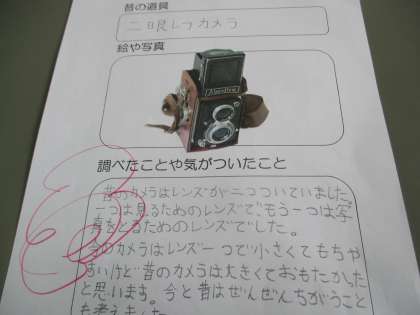 昔の道具
二眼レフカメラ
絵や写真
調べたことや気がついたこと
昔のカメラはレンズが二つついていました
一つは見るためのレンズで、もう一つは写
真をとるためのレンズでした。
今のカメラはレンズ一つで小さくてもちや
すいけど昔のカメラは大きくておもたかった
と思います。今と昔はぜんぜんちがうこと
も考えました